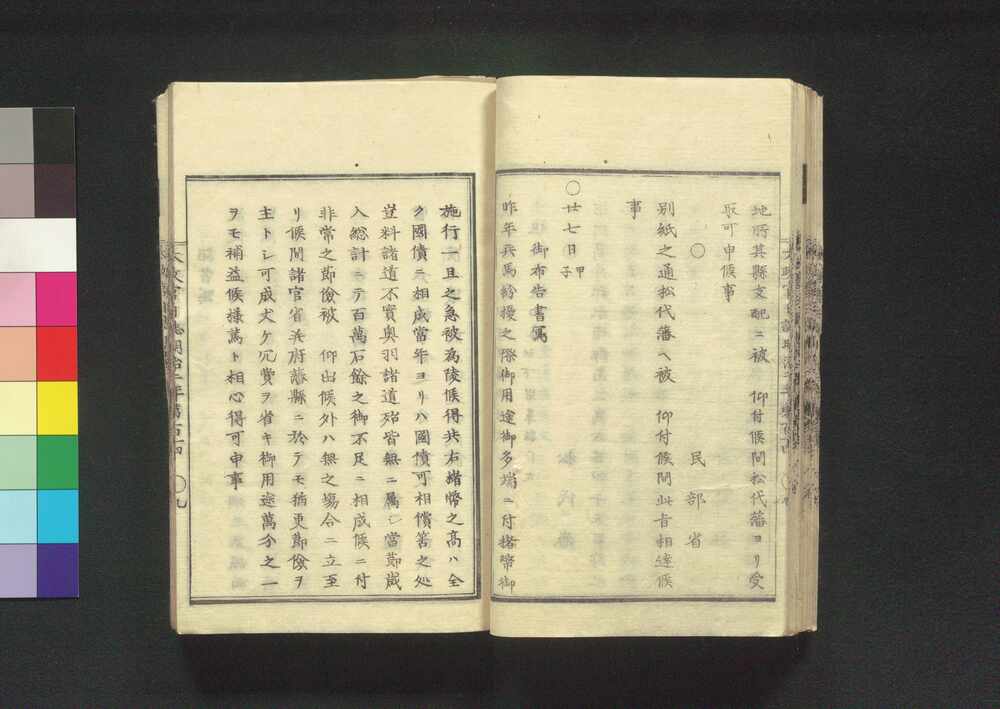 地所其縣支配ニ被　仰付候間松代藩ヨリ受
取可申候事
○　　　民部省
別紙之通松代藩ヘ被　仰付候間此旨相達候
事
○廿七日甲子
御布告書寫
昨年兵馬紛擾之際御用途御多端ニ付楮幣御
施行一旦之急被為凌候得共右楮幣之高ハ全
ク國債ニ相成當年ヨリハ國債可相償筈之処
豈料諸道不實奥羽諸道殆皆無ニ属シ當節歳
入総計ニテ百萬石餘之御不足ニ相成候ニ付
非常之節儉被　仰出候外ハ無之場合ニ立至
リ候間諸官省并府藩縣ニ於テモ猶更節儉ヲ
主トシ可成丈ケ冗費ヲ省キ御用途萬分之一
ヲモ補益候様篤ト相心得可申事
太政官日誌明治二年第百四　○九